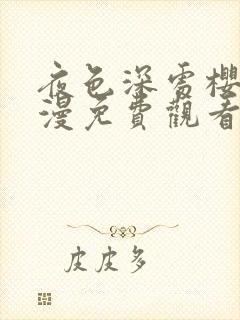 夜色深處櫻
漫免費觀看
皮皮多